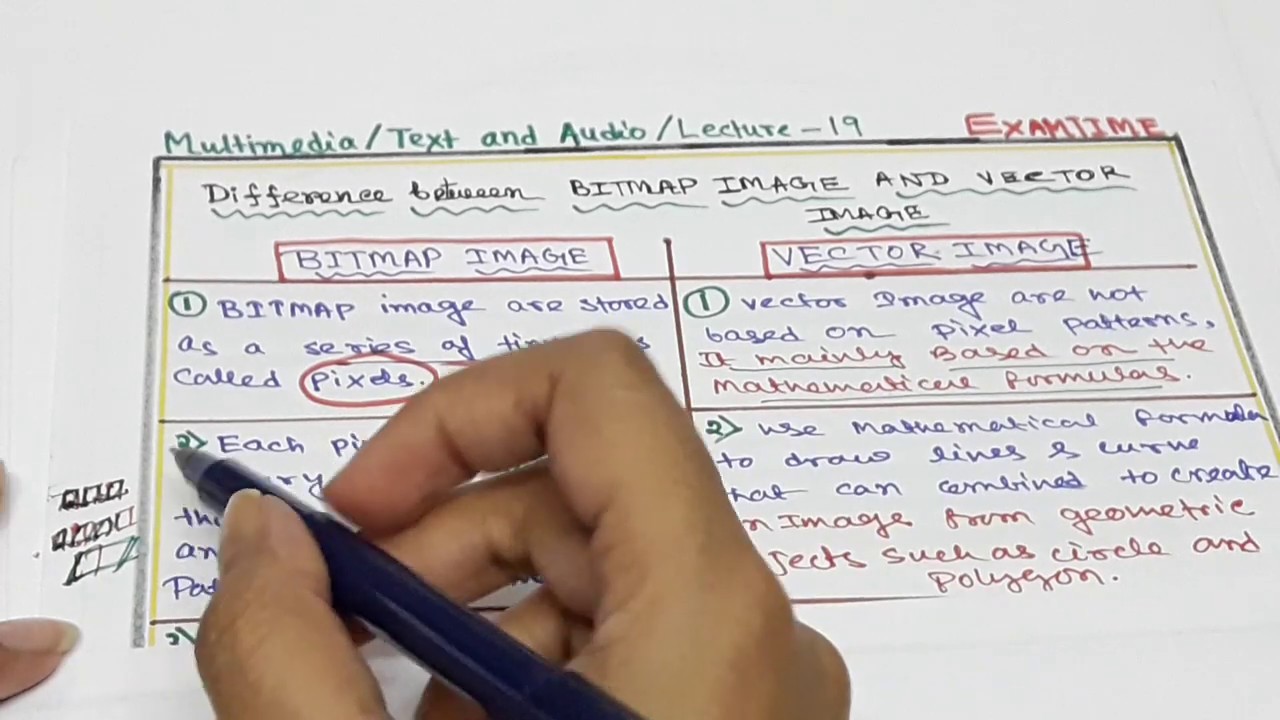 Multimedia/Text and Audio/Lecture-19 EXAMTIME
Difference between BITMAP IMAGE AND VECTOR
IMAGE
BITMAP IMAGE
① BITMAP image are stored
as a series of
called pixels.
2> Each
VECTOR IMAGE
① Vector Image are not
based on pixel patterns,
It mainly Based on the
Mathematical formulas.
2> Use Mathematical formula
to draw lines & curve
that can combined to create
an Image from geometric
such as circle and
polygon.